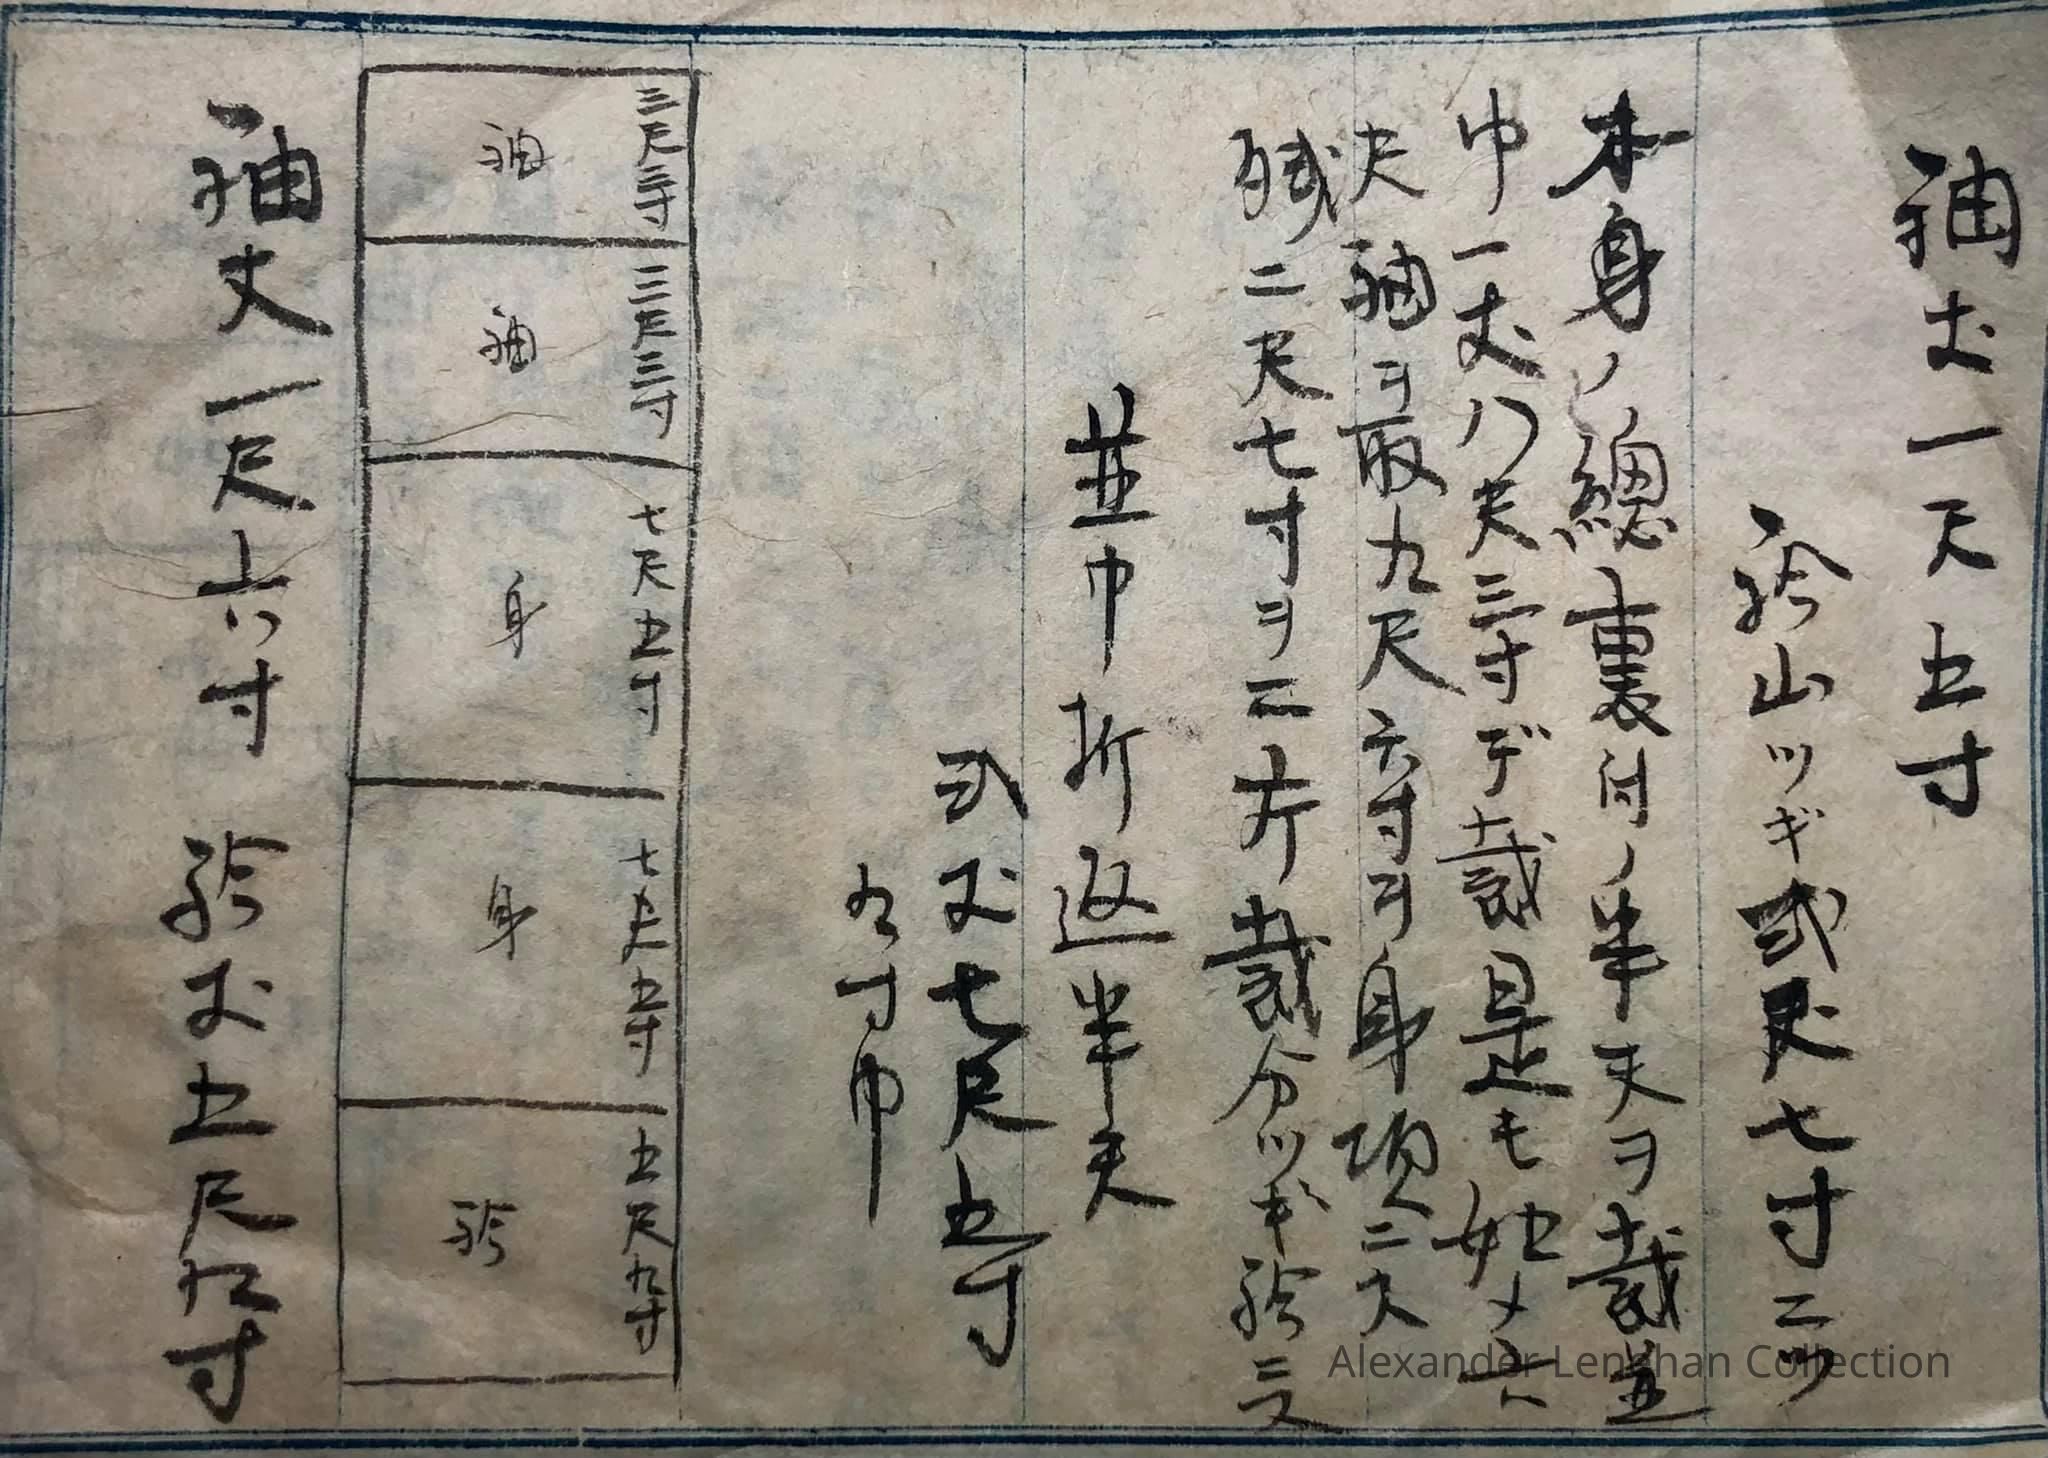 袖丈一尺五寸
袵山ツギ弐尺七寸二ツ
本身ノ總裏付ノ半天ヲ裁並
巾一丈八尺三寸デ裁是モ始メ六
尺袖ヲ取九尺六寸ヲ身項ニ
残二尺七寸ヲ二片裁分ツギ袵ニ
並巾折返半天
弐丈七尺五寸
九寸巾
三尺三寸
袖
三尺三寸
袖
七尺五寸
身
七尺五寸
身
五尺九寸
袵
袖丈一尺六寸 袵丈五尺九寸
Alexander Lenahan Collection